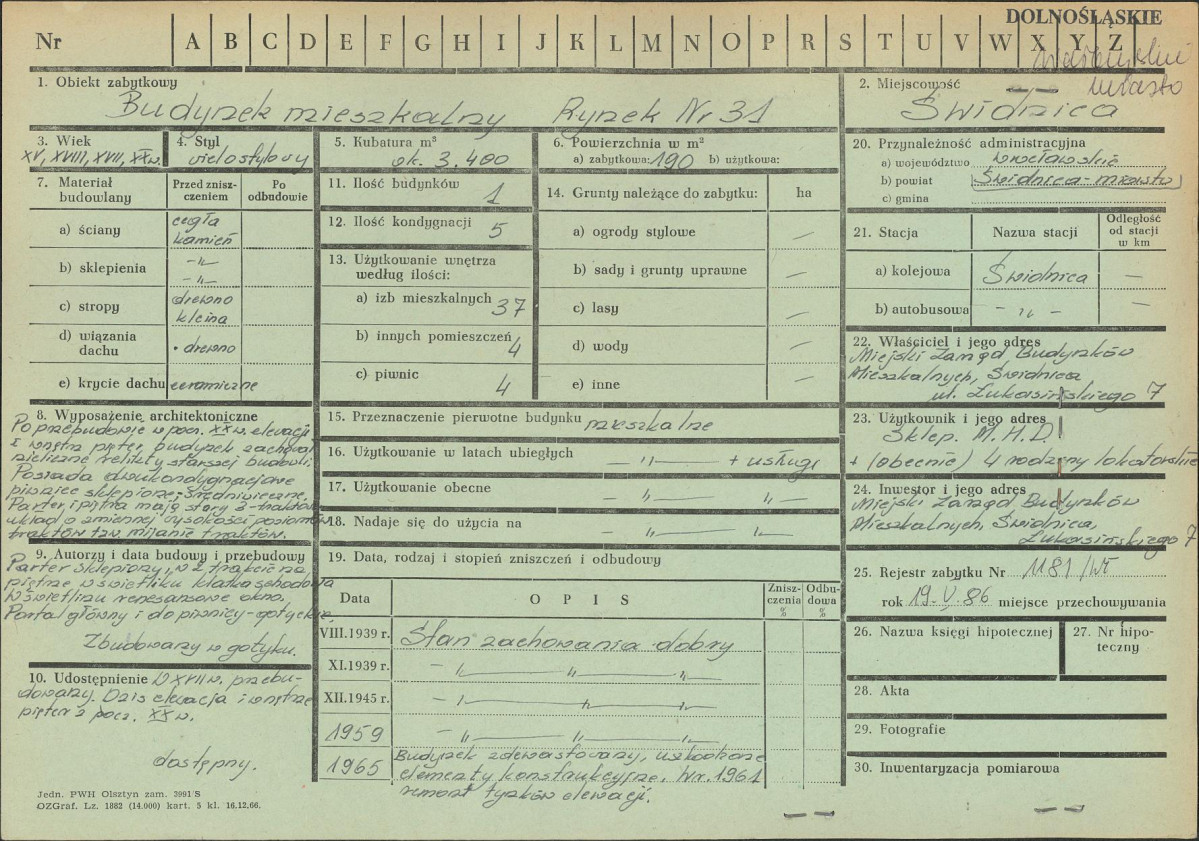 DOLNOŚLĄSKIE
Nr A B C D E F G H I J K L M N O P R S T U V W X Y Z
wałbrzyskie
miasto
1. Obiekt zabytkowy
Budynek mieszkalny Rynek Nr 31
2. Miejscowość
Świdnica
3. Wiek
XV, XVIII, XVII, XX w.
4. Styl
wielostylowy
5. Kubatura m³
ok. 3.400
6. Powierzchnia w m²
a) zabytkowa: 190 b) użytkowa:
20. Przynależność administracyjna
a) województwo wrocławskie
b) powiat Świdnica-miasto
c) gmina
7. Materiał budowlany
Przed zniszczeniem
Po odbudowie
a) ściany cegła kamień
b) sklepienia -"- -"-
c) stropy drewno kleina
d) wiązania dachu drewno
e) krycie dachu ceramiczne
11. Ilość budynków 1
12. Ilość kondygnacji 5
13. Użytkowanie wnętrza według ilości:
a) izb mieszkalnych 37
b) innych pomieszczeń 4
c) piwnic 4
14. Grunty należące do zabytku: ha
a) ogrody stylowe —
b) sady i grunty uprawne —
c) lasy —
d) wody —
e) inne —
21. Stacja Nazwa stacji Odległość od stacji w km
a) kolejowa Świdnica —
b) autobusowa -"- —
22. Właściciel i jego adres
Miejski Zarząd Budynków
Mieszkalnych, Świdnica
ul. Łukasińskiego 7
8. Wyposażenie architektoniczne
Po przebudowie w pocz. XX w. elewacji
i wnętrz pięter, budynek zachował
nieliczne relikty starszej budowli.
Posiada dwukondygnacjowe
piwnice sklepione, średniowieczne.
Parter i piętra mają stary 3-traktów.
układ o zmiennej wysokości poziomów
traktów tzw. mijanie traktów.
15. Przeznaczenie pierwotne budynku mieszkalne
16. Użytkowanie w latach ubiegłych — " — + usługi
17. Użytkowanie obecne — " — " —
18. Nadaje się do użycia na — " — " —
23. Użytkownik i jego adres
Sklep. M.H.D.
+ (obecnie) 4 rodziny lokatorskie
24. Inwestor i jego adres
Miejski Zarząd Budynków
Mieszkalnych, Świdnica,
Łukasińskiego 7
9. Autorzy i data budowy i przebudowy
Parter sklepiony, w 2 trakcie na
piętrze w świetliku klatka schodowa
W świetliku renesansowe okno.
Portal główny i do piwnicy - gotyckie.
Zbudowany w gotyku.
10. Udostępnienie W XVII w. przebu-
dowany. Dziś elewacja i wnętrze
pięter z pocz. XX w.
dostępny.
19. Data, rodzaj i stopień zniszczeń i odbudowy
Data OPIS Zniszczenia % Odbudowa %
VIII.1939 r. Stan zachowania dobry
XI.1939 r. — " — " —
XII.1945 r. — " — " —
1959 — " — " —
1965 Budynek zdewastowany, uszkodzone
elementy konstrukcyjne. W r. 1961
remont tynków elewacji.
25. Rejestr zabytku Nr 1181/Wł
rok 19.V.86 miejsce przechowywania
26. Nazwa księgi hipotecznej
27. Nr hipoteczny
28. Akta
29. Fotografie
30. Inwentaryzacja pomiarowa
Jedn. PWH Olsztyn zam. 3991 S
OZGraf. Lz. 1882 (14.000) kart. 5 kl. 16.12.66.